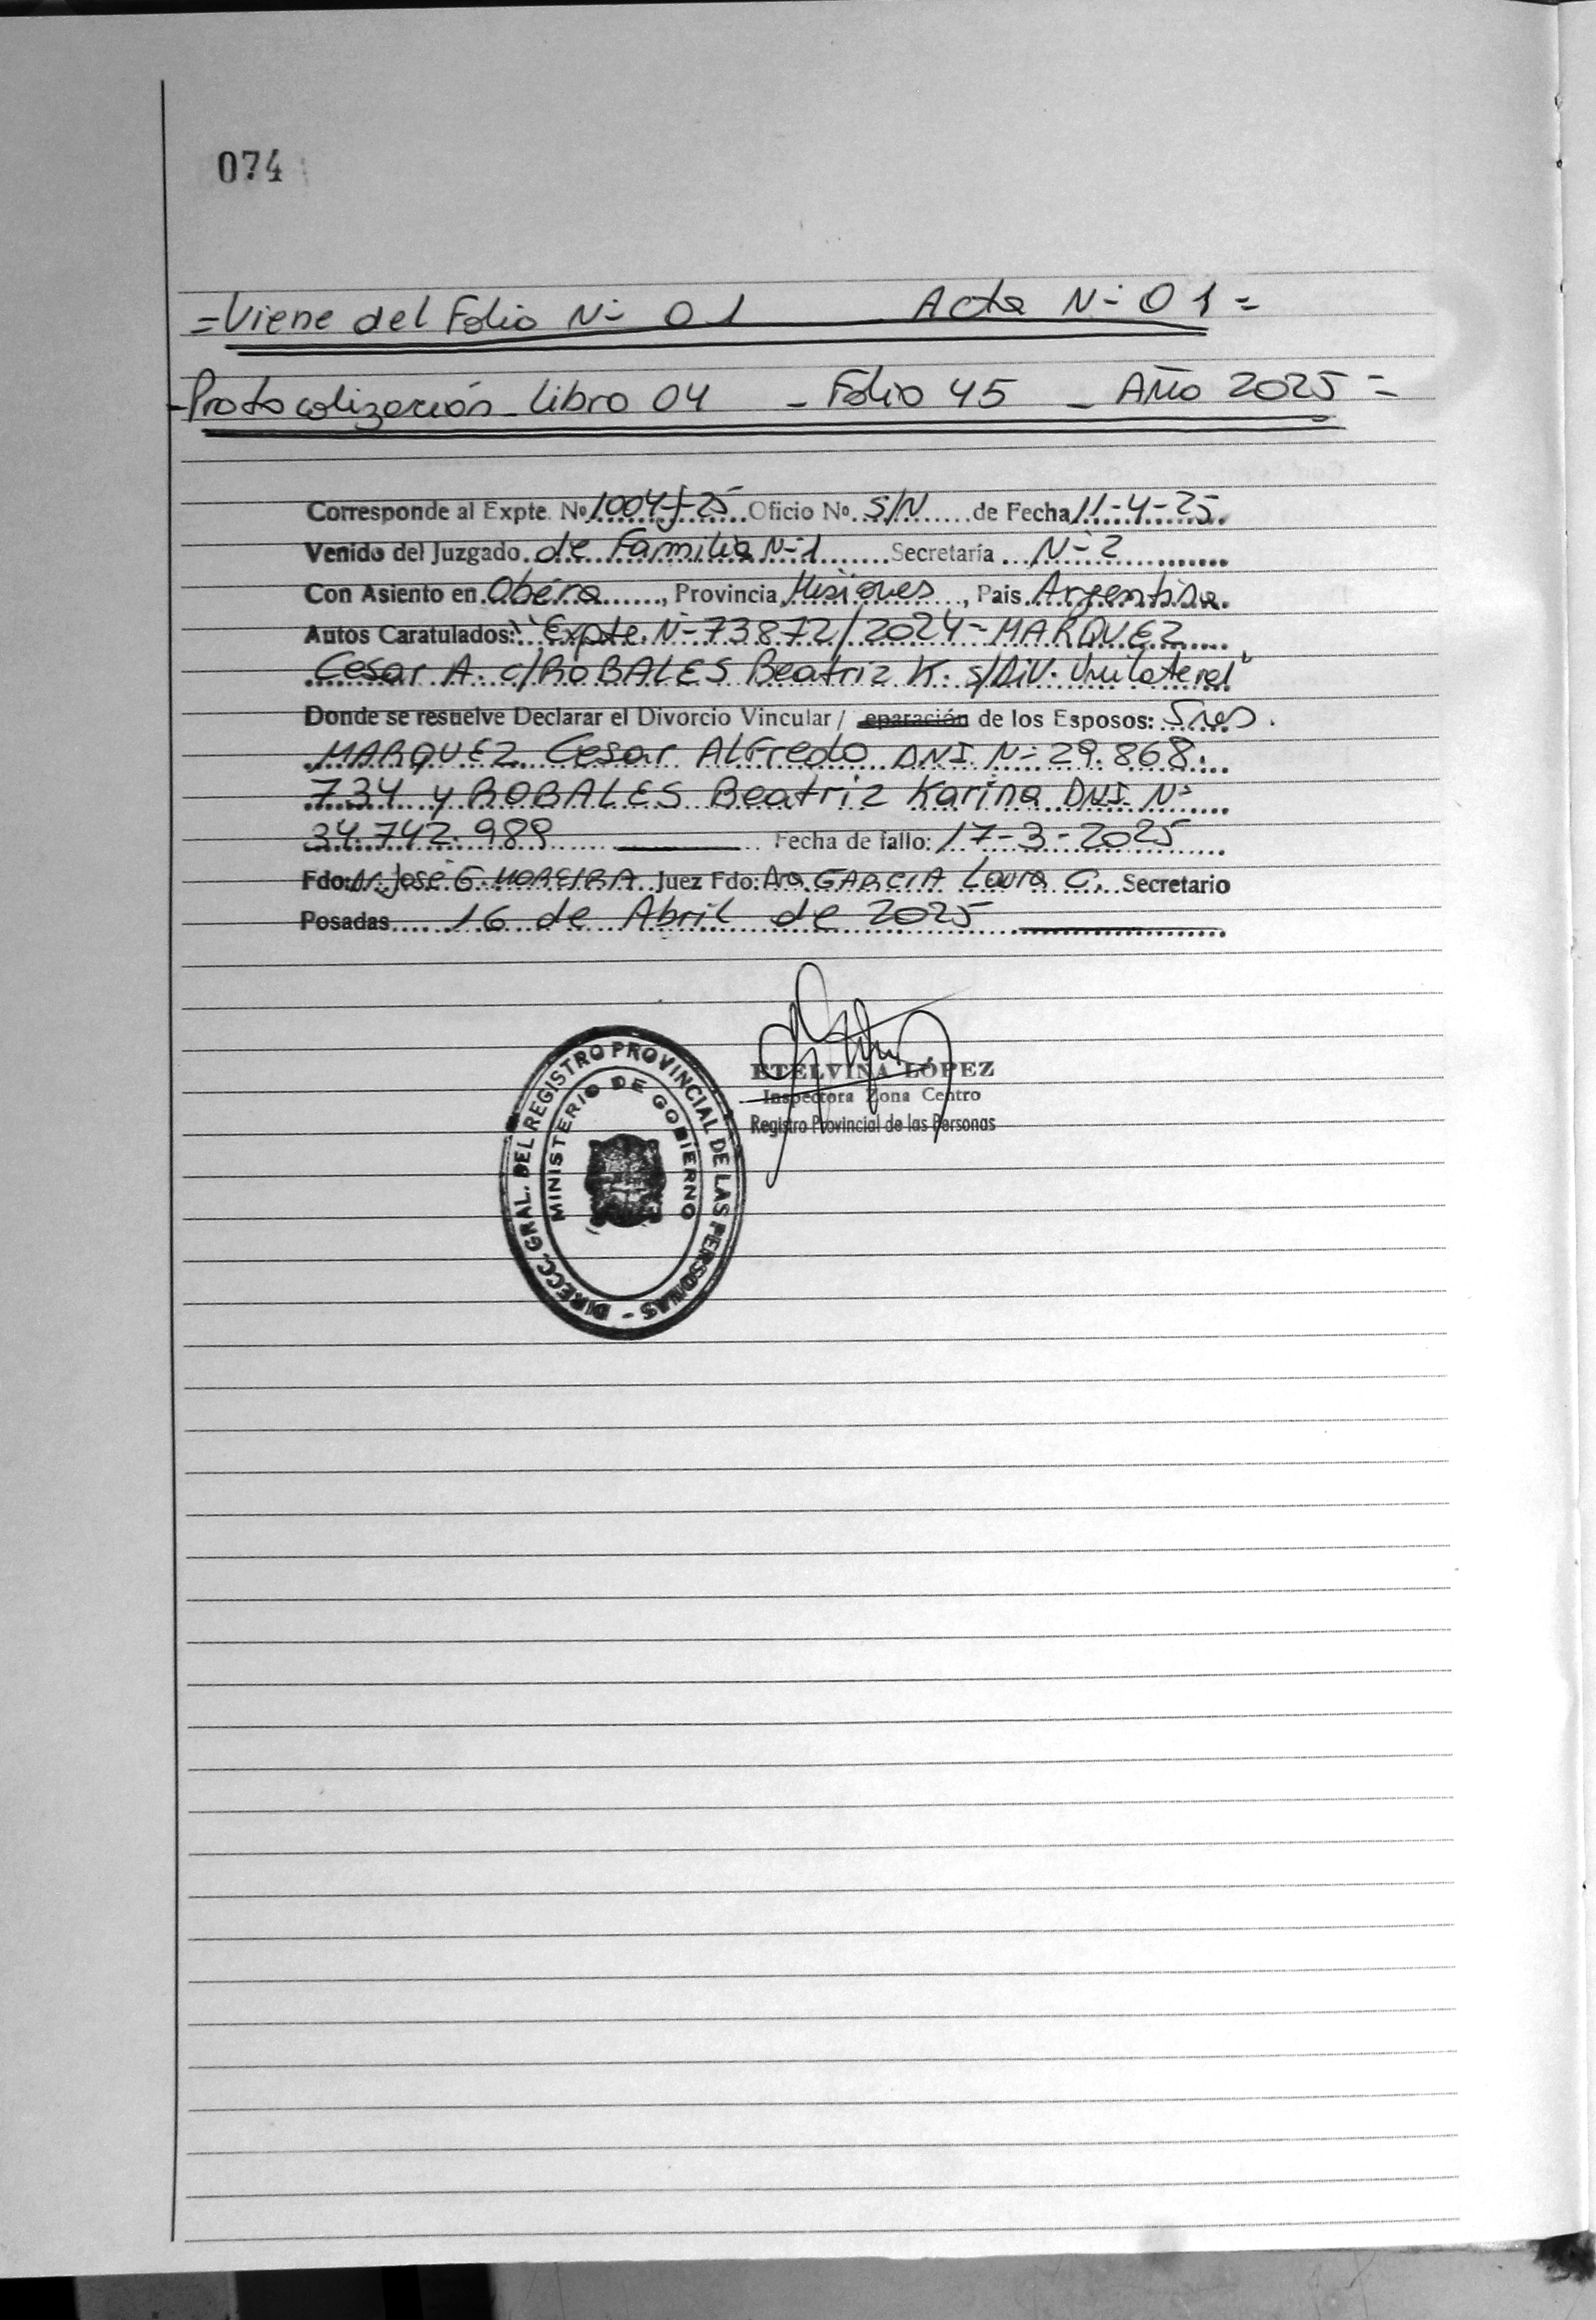 074
=Viene del Folio N- 01 Acta N- 01=
-Protocolización Libro 04 - Folio 45 - Año 2025=
Corresponde al Expte. Nº 1004-f-25 Oficio Nº S/N de Fecha 11-4-25.
Venido del Juzgado de Familia N-1 Secretaría N-2
Con Asiento en Oberá, Provincia Misiones, Pais Argentina.
Autos Caratulados: "Expte. N-73872/2024- MARQUEZ
Cesar A. c/ROBALES Beatriz K. s/Div. Unilateral"
Donde se resuelve Declarar el Divorcio Vincular / eparación de los Esposos: Sres.
MARQUEZ Cesar Alfredo DNI N- 29.868.
734 y ROBALES Beatriz Karina DNI N-
34.742.989 Fecha de fallo: 17-3-2025
Fdo: Dr. José G. MOREIRA Juez Fdo: Dra GARCIA Laura C. Secretario
Posadas 16 de Abril de 2025
ETELVINA LÓPEZ
Inspectora Zona Centro
Registro Provincial de las Personas
DIRECC. GRAL. DEL REGISTRO PROVINCIAL DE LAS PERSONAS -
MINISTERIO DE GOBIERNO